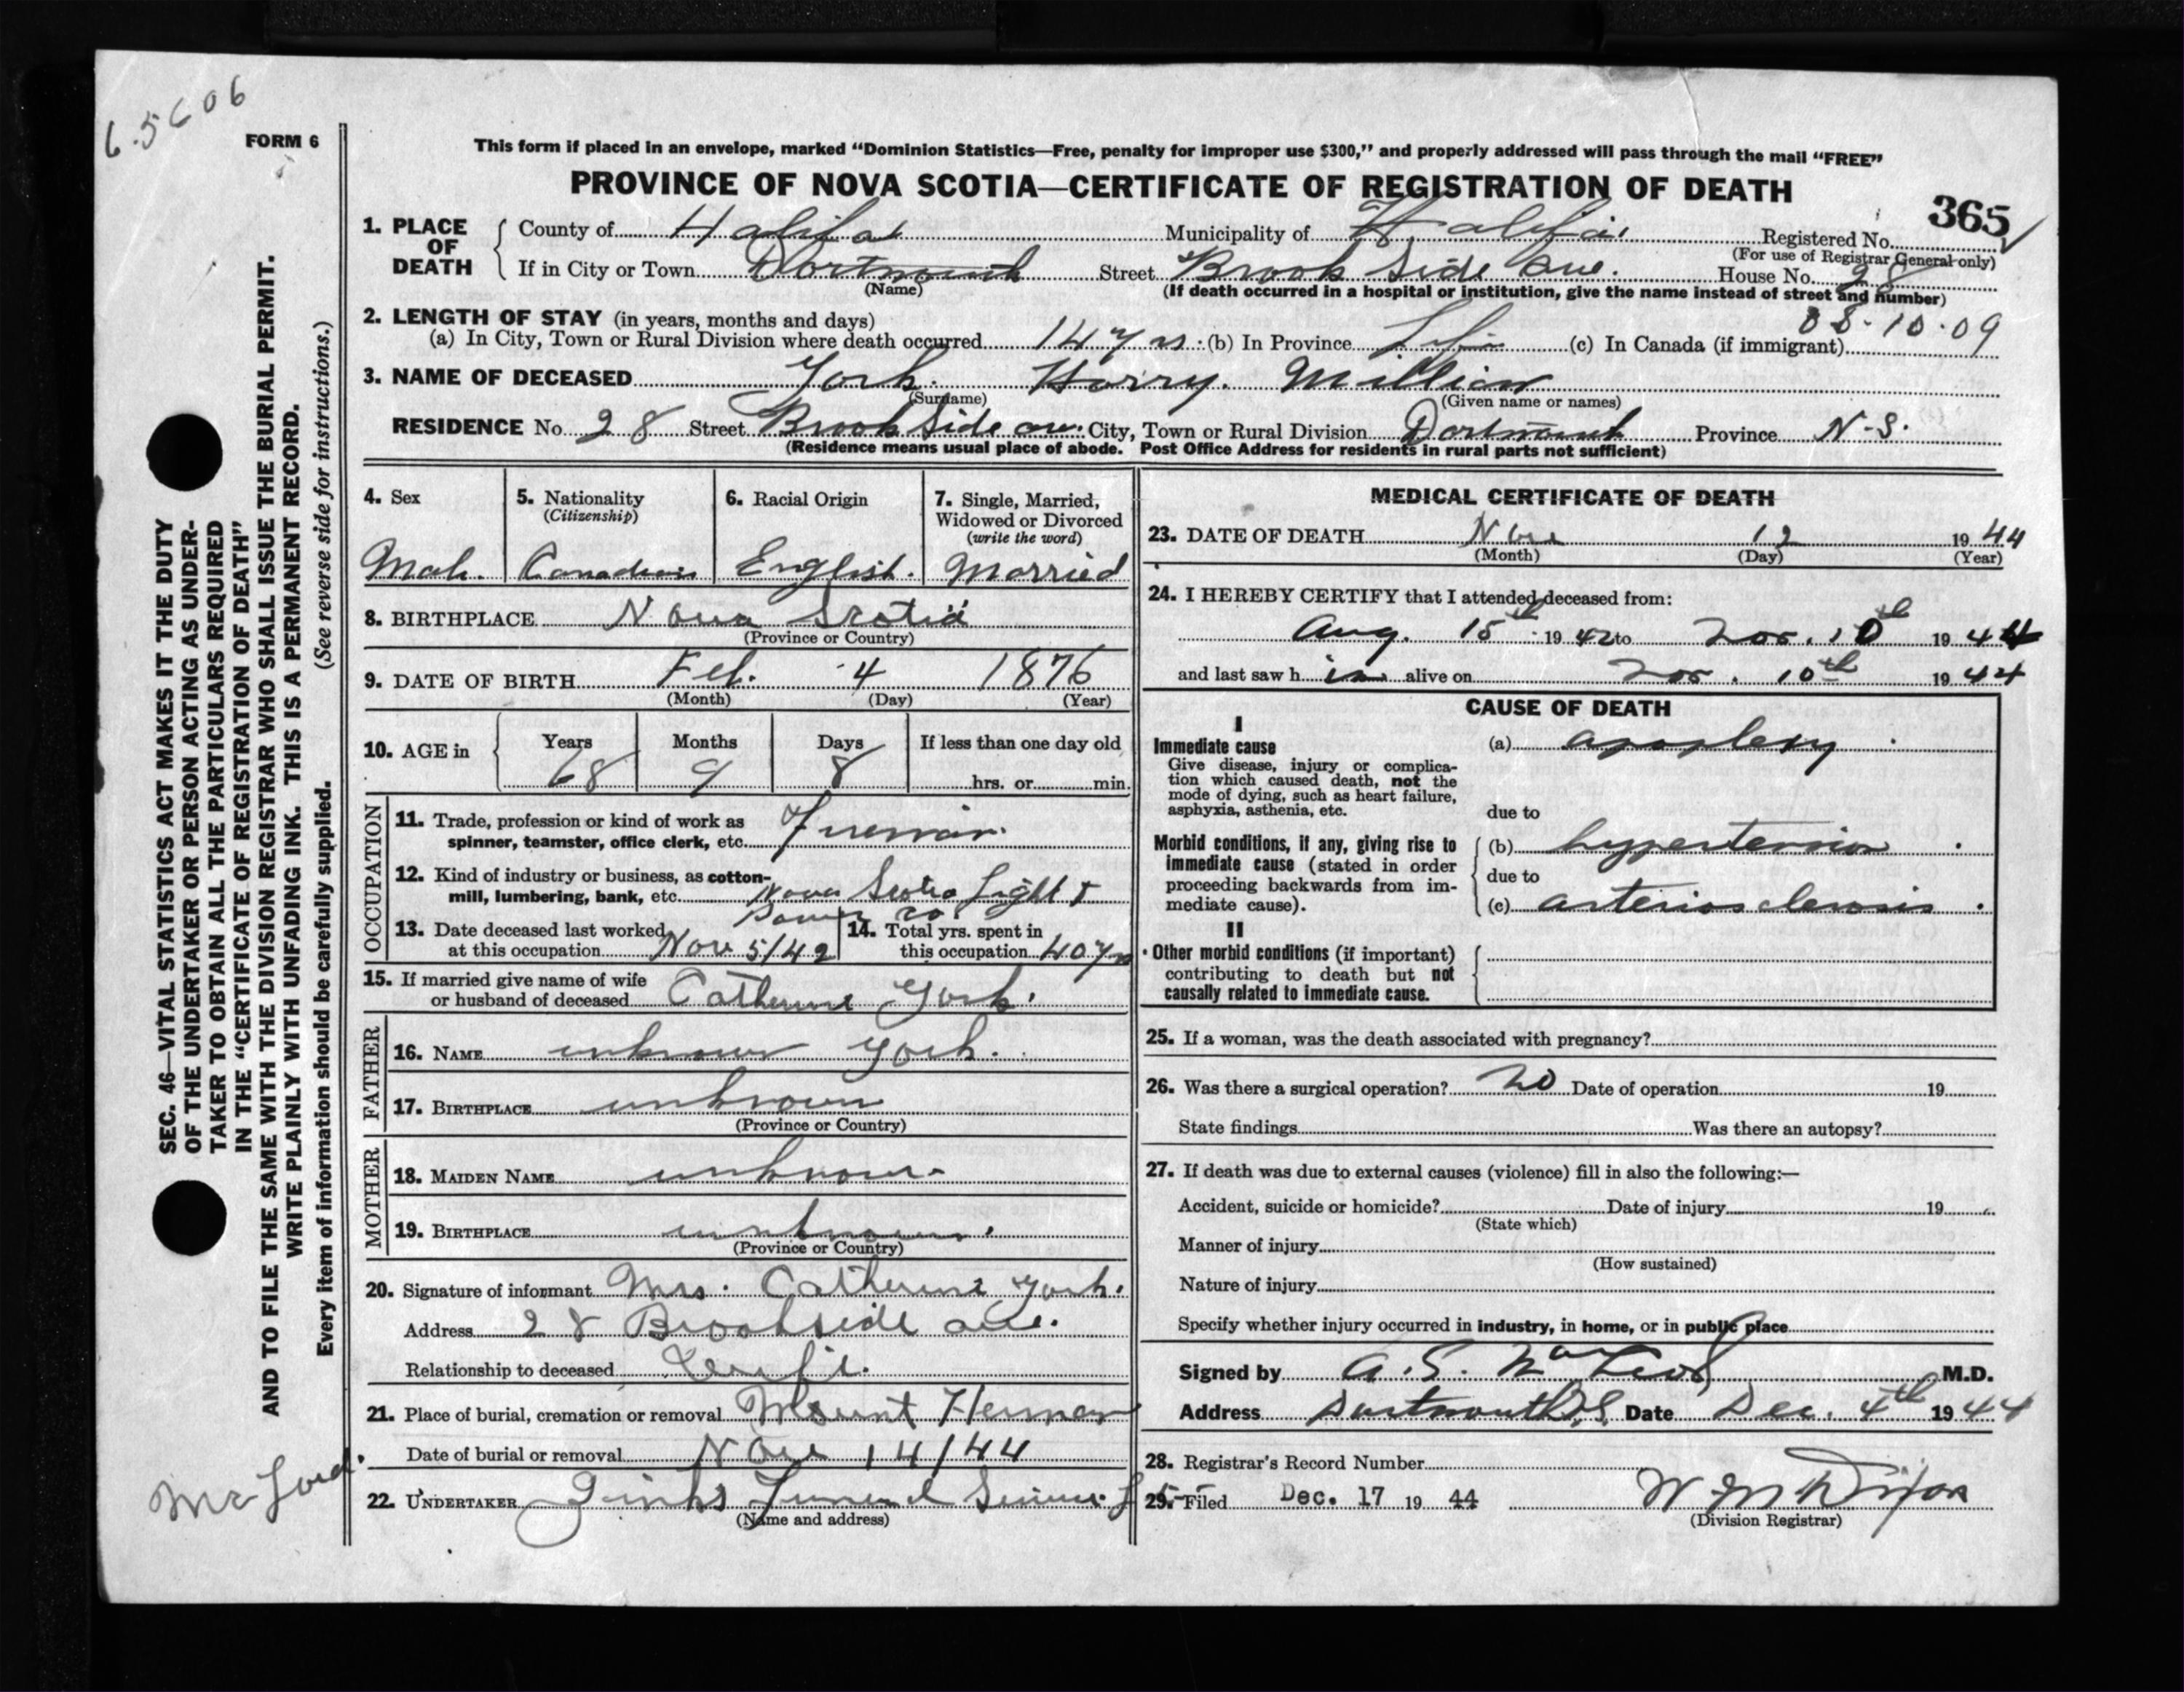 6.5C06
FORM 6
This form if placed in an envelope, marked “Dominion Statistics—Free, penalty for improper use $300,” and properly addressed will pass through the mail “FREE”
PROVINCE OF NOVA SCOTIA—CERTIFICATE OF REGISTRATION OF DEATH
365
1. PLACE OF DEATH County of Halifax Municipality of Halifax Registered No.
(For use of Registrar General only)
If in City or Town Dartmouth Street Brook Side Ave. House No. 28
(Name) (If death occurred in a hospital or institution, give the name instead of street and number)
2. LENGTH OF STAY (in years, months and days) 08-10-09
(a) In City, Town or Rural Division where death occurred 14 yrs. (b) In Province Life (c) In Canada (if immigrant)
3. NAME OF DECEASED York. Harry.
(Surname) (Given name or names)
RESIDENCE No. 28 Street Brook Side ave. City, Town or Rural Division Dartmouth Province N-S.
(Residence means usual place of abode. Post Office Address for residents in rural parts not sufficient)
4. Sex 5. Nationality (Citizenship) 6. Racial Origin 7. Single, Married, Widowed or Divorced (write the word)
Male. Canadian English. Married
8. BIRTHPLACE Nova Scotia
(Province or Country)
9. DATE OF BIRTH Feb. 4 1876
(Month) (Day) (Year)
10. AGE in Years Months Days If less than one day old
68 9 8 hrs. or min.
OCCUPATION
11. Trade, profession or kind of work as
spinner, teamster, office clerk, etc. Fireman.
12. Kind of industry or business, as cotton-
mill, lumbering, bank, etc. Nova Scotia Light &
Power Co.
13. Date deceased last worked
at this occupation Nov 5/42
14. Total yrs. spent in
this occupation 40 yrs
15. If married give name of wife
or husband of deceased Catherine York.
FATHER
16. NAME unknown York.
17. BIRTHPLACE unknown
(Province or Country)
MOTHER
18. MAIDEN NAME unknown
19. BIRTHPLACE unknown.
(Province or Country)
20. Signature of informant Mrs. Catherine York.
Address 28 Brookside ave.
Relationship to deceased wife.
21. Place of burial, cremation or removal Mount Herman
Date of burial or removal Nov 14/44
22. UNDERTAKER Funeral Service
(Name and address)
MEDICAL CERTIFICATE OF DEATH
23. DATE OF DEATH Nov 12 1944
(Month) (Day) (Year)
24. I HEREBY CERTIFY that I attended deceased from:
Aug. 15th 1942 to Nov. 10th 1944
and last saw him alive on Nov. 10th 1944
CAUSE OF DEATH
I
Immediate cause (a) apoplexy
Give disease, injury or complica-
tion which caused death, not the
mode of dying, such as heart failure,
asphyxia, asthenia, etc.
due to
Morbid conditions, if any, giving rise to (b) hypertension
immediate cause (stated in order due to
proceeding backwards from im-
mediate cause). (c) arteriosclerosis
II
Other morbid conditions (if important)
contributing to death but not
causally related to immediate cause.
25. If a woman, was the death associated with pregnancy?
26. Was there a surgical operation? no Date of operation 19
State findings Was there an autopsy?
27. If death was due to external causes (violence) fill in also the following:—
Accident, suicide or homicide? Date of injury 19
(State which)
Manner of injury
(How sustained)
Nature of injury
Specify whether injury occurred in industry, in home, or in public place
Signed by A. S. MacLeod M.D.
Address Dartmouth N.S. Date Dec. 4th 1944
28. Registrar's Record Number
29. Filed Dec. 17 19 44
(Division Registrar)
SEC. 46—VITAL STATISTICS ACT MAKES IT THE DUTY
OF THE UNDERTAKER OR PERSON ACTING AS UNDER-
TAKER TO OBTAIN ALL THE PARTICULARS REQUIRED
IN THE “CERTIFICATE OF REGISTRATION OF DEATH”
AND TO FILE THE SAME WITH THE DIVISION REGISTRAR WHO SHALL ISSUE THE BURIAL PERMIT.
WRITE PLAINLY WITH UNFADING INK. THIS IS A PERMANENT RECORD.
Every item of information should be carefully supplied. (See reverse side for instructions.)